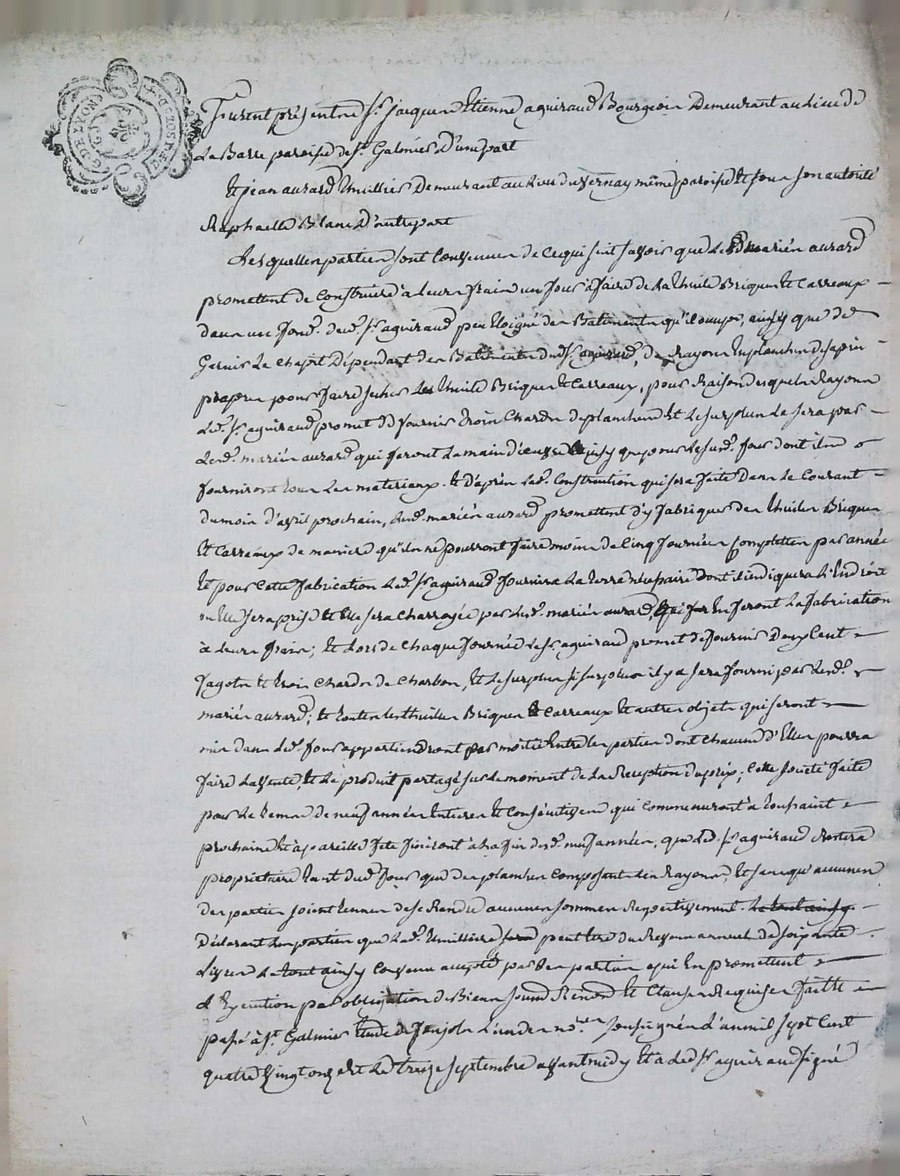 Furent présents Sr. Jacques Etienne aguiraud Bourgeois Demeurant au Lieu de
La Barre paroisse de St. Galmier d'une part
Et jean aurard thuillier Demeurant au Lieu du Vernay même paroisse Et sous son autorité
Raphaelle Blanc d'autre part
Les quelles parties sont Convenues de Ce qui suit sçavoir que Lesd. mariés aurard
promettent de Construire à Leurs frais un four à faire de La thuile Briques Et Carreaux
dans un fond dud. Sr. aguiraud peu Eloigné des Batiments qu'il occupe, ainsy que de
Garnir Le Chapit Dépendant des Batiments dud. Sr. aguiraud, de Rayons En planches
propres pour faire secher Les thuile Briques Et Carreaux, pour Raison desquels Rayons
Led. Sr. aguiraud promet de fournir trois Chards de planches Et Le surplus Le sera par
Lesd. mariés aurard qui feront La main d'œuvre ainsy que pour Le sud. four dont ils
fourniront tous Les materiaux. Et d'après Lad. Construction qui sera faite Dans Le Courant
du mois d'avril prochain, Lesd. mariés aurard promettent d'y fabriquer des thuiles Briques
Et Carreaux de maniere qu'ils ne pourront faire moins de Cinq fournées Complettes par année
Et pour Cette fabrication Led. Sr. aguiraud fournira La terre necessaire dont il indiquera L'Endroit
ou Elle sera prise Et Elle sera Charroyée par Lesd. mariés aurard, qui En feront La fabrication
à Leurs frais; Et Lors de Chaque fournée Led. Sr. aguiraud promet de fournir Deux Cent
fagots Et trois Chards de Charbon, Et Le surplus si surplus il y a sera fourni par Lesd.
mariés aurard; Et toutes Les thuiles Briques Et Carreaux Et autres objets qui seront
mis dans Led. four appartiendront par moitié Entre Les parties dont Chacune d'Elles pourra
faire La Vente, Et Le produit partagé sur Le moment de La Reception du prix; Cette societé faite
pour Le tems de neuf années Entieres Et Consécutives qui Commenceront à toussaint
prochaine Et à pareille fete finiront à La fin desd. neuf années, que Led. Sr. aguiraud Restera
propriétaire tant dud. four que des planches Composant Les Rayons, Et sans qu'aucunes
des parties soient tenues de se Rendre aucunes sommes Respectivement. Le tout ainsy
Déclarant Les parties que Lad. thuilliere peut Etre du Revenu annuel de soixante
Livres Le tout ainsy Convenu accepté par Les parties qui En promettent
L'Exécution par obligation de Biens soumis Renond. Et Clauses Requises faitte
passé à St. Galmier Etude de L'un des nores. soussignés L'an mil sept Cent
quatre Vingt onze Et Le treize septembre avant midy Et a Led. Sr. aguiraud signé